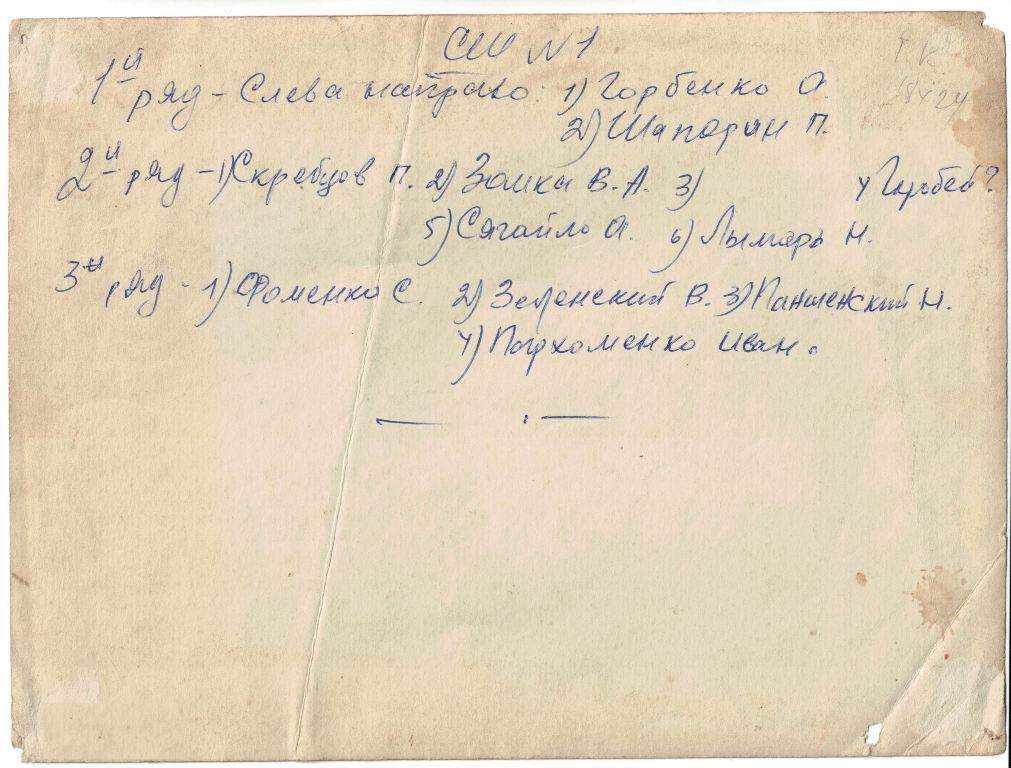 СШ №1
1й ряд - Слева направо: 1) Горбенко А.
2) Шапарин П.
2й ряд - 1) Скребцов П. 2) Заика В.А. 3) 4 Горбей?
5) Сягайло А. 6) Лымарь Н.
3й ряд - 1) Фоменко С. 2) Зеленский В. 3) Паншенский Н.
4) Пархоменко Иван.